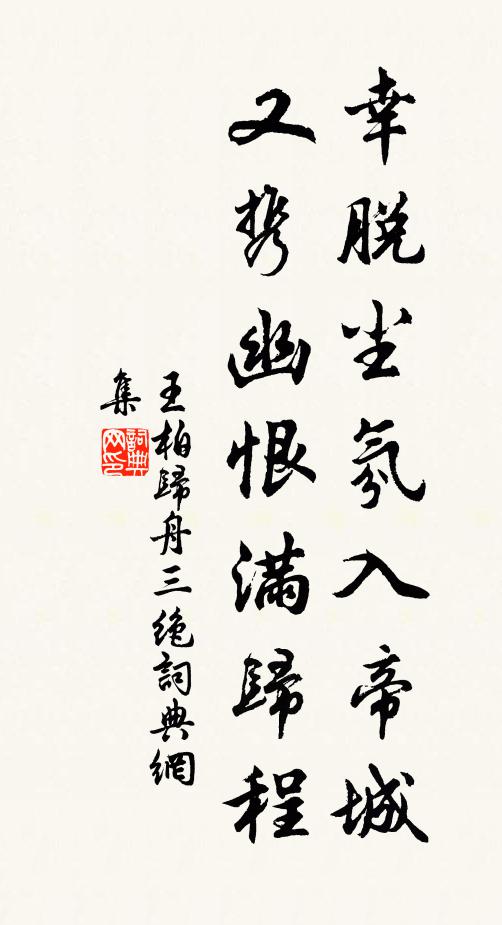 幸脱尘氛入帝城
又携幽恨满歸程
王柏歸舟三绝詞典網
集
詞典网印